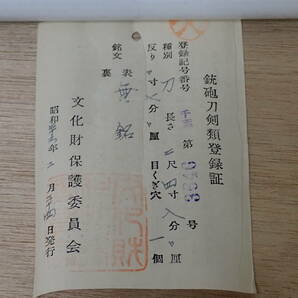 銃砲刀剣類登録証
登録記号番号 千葉 第 号
種別 刀 長さ 二尺四寸八分 厘
反り 寸七分 厘 目くぎ穴 一個
銘文 表 無銘
裏
昭和 年 二月 日発行
文化財保護委員会